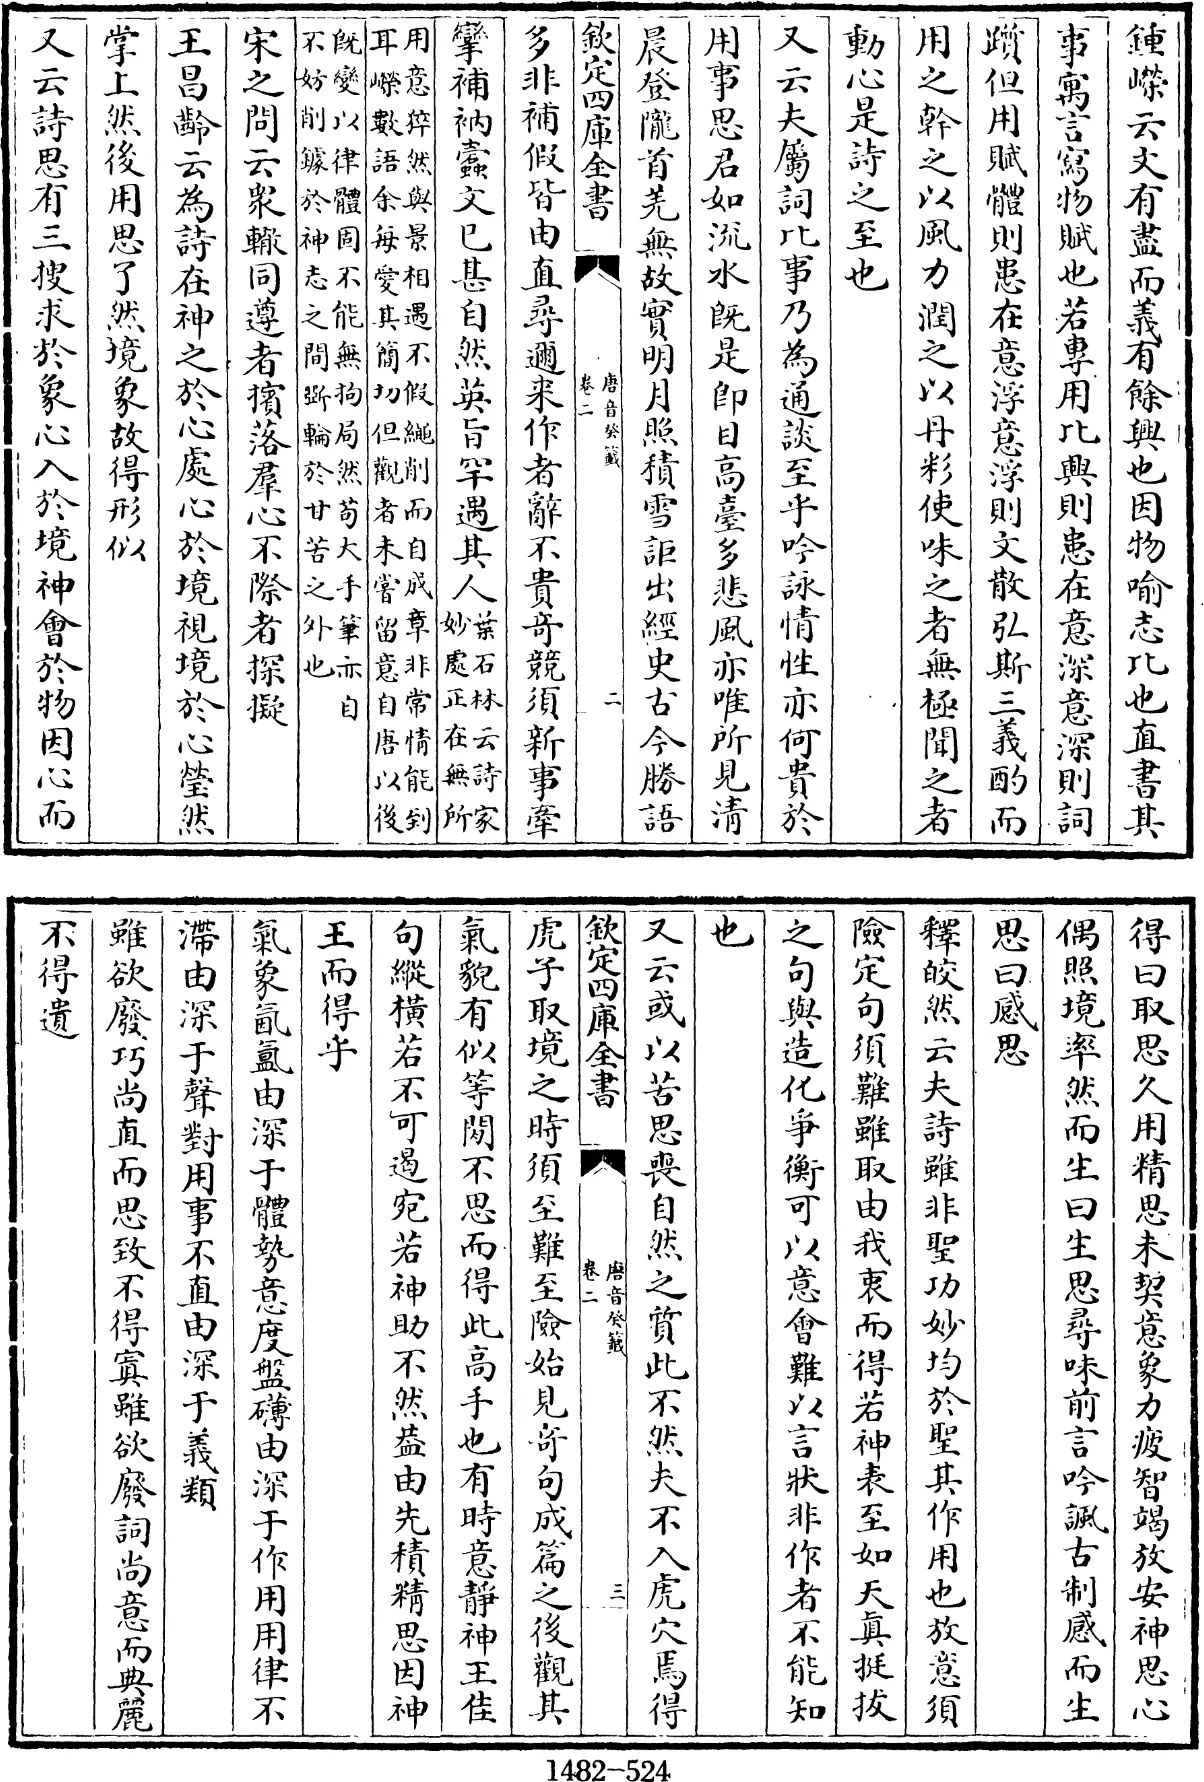 鍾嶸云文有盡而義有餘興也因物喻志比也直書其
事寓言寫物賦也若專用比興則患在意深意深則詞
躓但用賦體則患在意浮意浮則文散弘斯三義酌而
用之幹之以風力潤之以丹彩使味之者無極聞之者
動心是詩之至也
又云夫屬詞比事乃為通談至乎吟詠情性亦何貴於
用事思君如流水既是即目高臺多悲風亦唯所見清
晨登隴首羌無故實明月照積雪詎出經史古今勝語
欽定四庫全書
唐音癸籤
卷二
二
多非補假皆由直尋邇来作者辭不貴奇競須新事牽
攣補衲蠹文已甚自然英旨罕遇其人
葉石林云詩家
妙處正在無所
用意猝然與景相遇不假繩削而自成章非常情能到
耳嶸數語余每愛其簡切但觀者未嘗留意自唐以後
既變以律體固不能無拘局然苟大手筆亦自
不妨削鐻於神志之間斵輪於甘苦之外也
宋之問云衆轍同遵者擯落羣心不際者探擬
王昌齡云為詩在神之於心處心於境視境於心瑩然
掌上然後用思了然境象故得形似
又云詩思有三搜求於象心入於境神會於物因心而
得曰取思久用精思未契意象力疲智竭放安神思心
偶照境率然而生曰生思尋味前言吟諷古制感而生
思曰感思
釋皎然云夫詩雖非聖功妙均於聖其作用也放意須
險定句須難雖取由我衷而得若神表至如天真挺拔
之句與造化爭衡可以意會難以言狀非作者不能知
也
又云或以苦思喪自然之質此不然夫不入虎穴焉得
欽定四庫全書
唐音癸籤
卷二
三
虎子取境之時須至難至險始見奇句成篇之後觀其
氣貌有似等閒不思而得此高手也有時意靜神王佳
句縱橫若不可遏宛若神助不然葢由先積精思因神
王而得乎
氣象氤氳由深于體勢意度盤礴由深于作用用律不
滯由深于聲對用事不直由深于義類
雖欲廢巧尚直而思致不得寘雖欲廢詞尚意而典麗
不得遺
1482-524